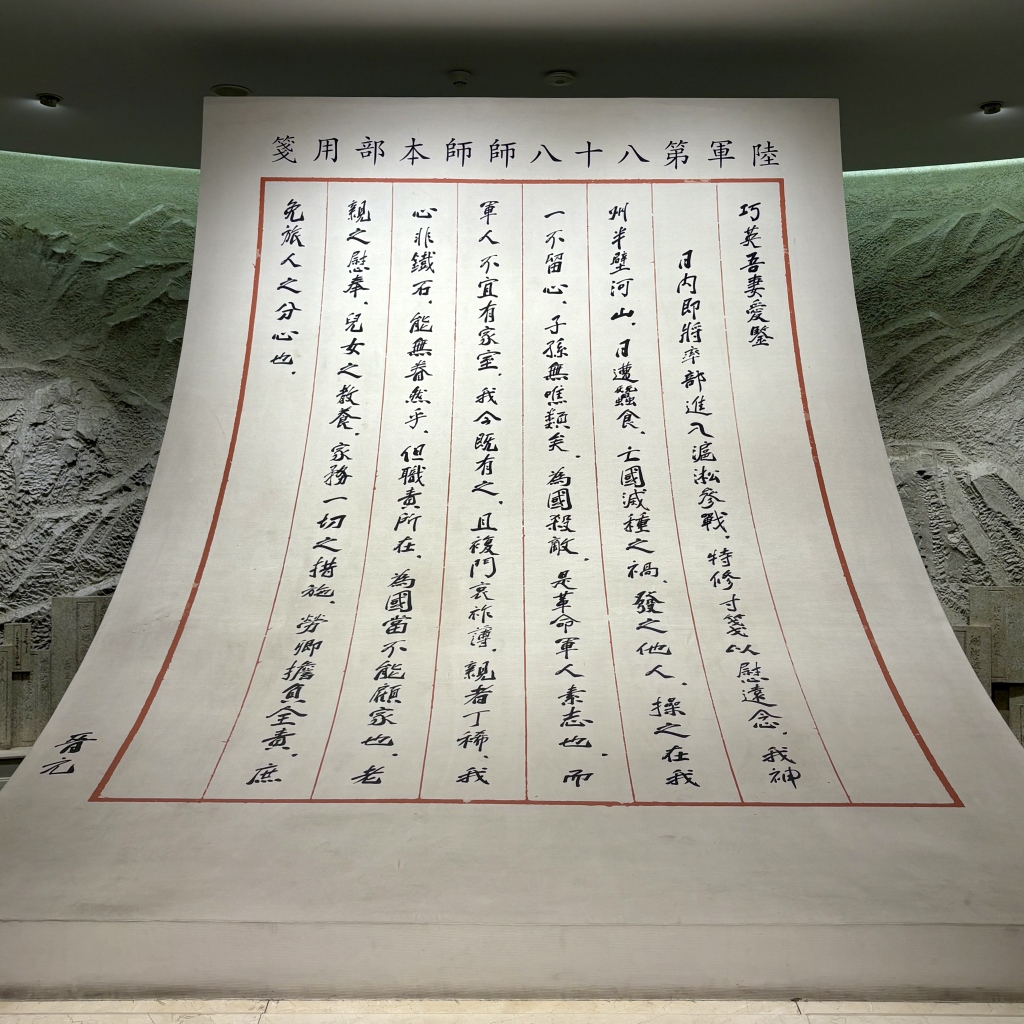 陸軍第八十八師師本部用箋
巧英吾妻愛鑒
日內即將率部進入滬淞參戰，特修寸箋以慰遠念，我神
州半壁河山，日遭蠶食，亡國滅種之禍，發之他人，操之在我
一不留心，子孫無噍類矣，為國殺敵，是革命軍人素志也，而
軍人不宜有家室，我今既有之，且複門衰祚薄，親者丁稀，我
心非鐵石，能無眷然乎，但職責所在，為國當不能顧家也，老
親之慰奉，兒女之教養，家務一切之措施，勞卿擔負全責，庶
免旅人之分心也，
晉元